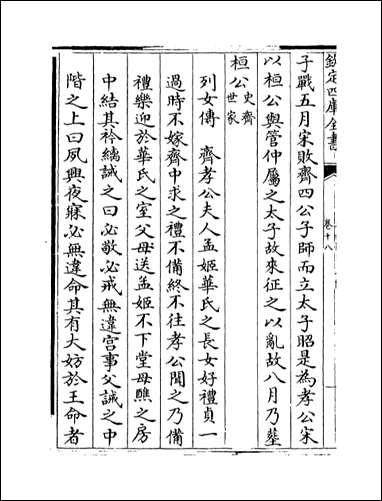 欽定四庫全書
卷十八
子戰五月宋敗齊四公子師而立太子昭是為孝公宋
以桓公與管仲屬之太子故來征之以亂故八月乃塟
桓公 史齊世家
列女傳 齊孝公夫人孟姬華氏之長女好禮貞一
過時不嫁齊中求之禮不備終不往孝公聞之乃備
禮樂迎於華氏之室父母送孟姬不下堂母醮之房
中結其衿縭誡之曰必敬必戒無違宫事父誡之中
階之上曰夙興夜寐必無違命其有大妨於王命者